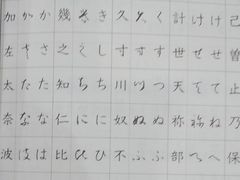 加 か か 幾 き き 久 く く 計 け け 己
左 さ さ 之 し し 寸 す す 世 せ せ 曽
太 た た 知 ち ち 川 つ つ 天 て て 止
奈 な な 仁 に に 奴 ぬ ぬ 祢 ね ね 乃
波 は は 比 ひ ひ 不 ふ ふ 部 へ へ 保